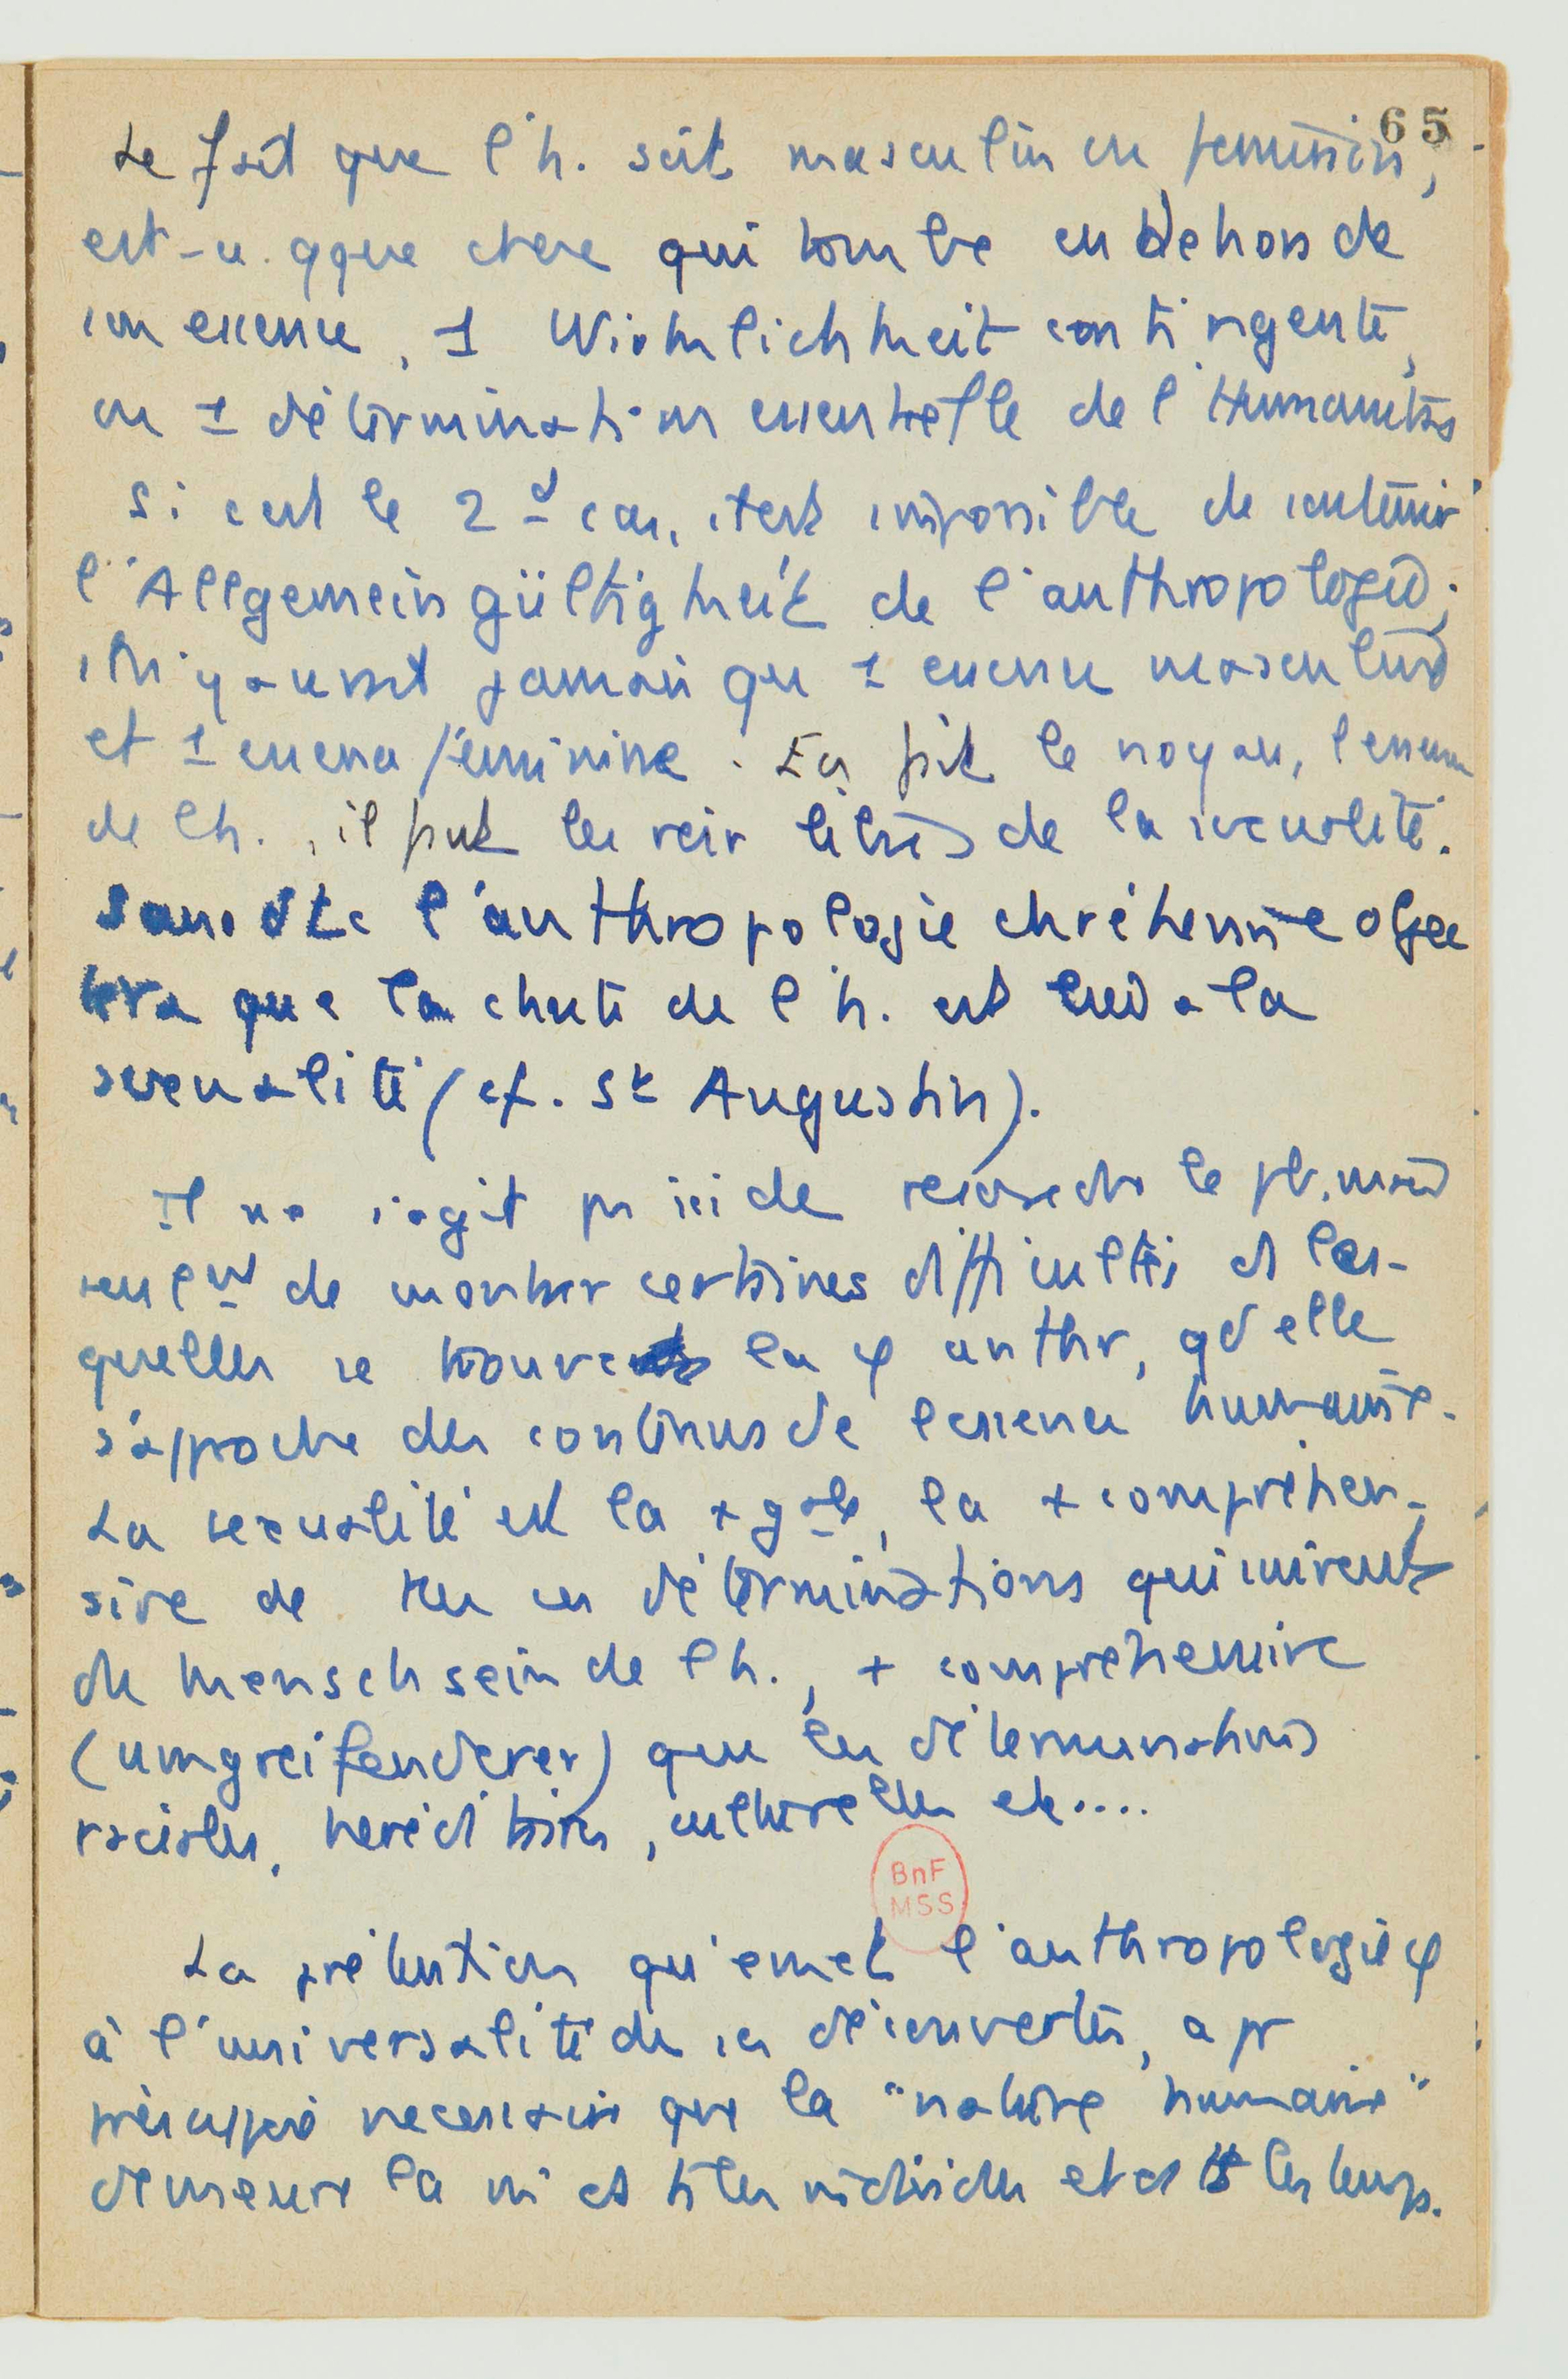 65
Le fait que l'h. soit masculin ou féminin,
est-ce qque chose qui tombe en dehors de
son essence, 1 Wirklichkeit contingente,
ou 1 détermination essentielle de l'Humanitas
Si c'est le 2d cas, il est impossible de soutenir
l'Allgemeingültigkeit de l'anthropologie;
il n'y aurait jamais qu 1 essence masculine
et 1 essence féminine. En fait le noyau, l'essence
de l'h., il faut les voir libres de la sexualité.
Sans dte l'anthropologie chrétienne objec
tera que la chute de l'h. est liée a la
sexualité (cf. St Augustin).
Il ne s'agit pas ici de résoudre le pb. mais
seulnt de montrer certaines difficultés ds les-
quelles se trouve la φ anthr, qd elle
s'approche des contenus de l'essence humaine.
La sexualité est la + gale, la + compréhen-
sive de ttes ces déterminations qui suivent
du Menschsein de l'h., + compréhensive
(umgreifenderer) que les déterminations
raciales, héréditaires, culturelles etc....
BnF
MSS
La prétention qu'émet l'anthropologie φ
à l'universalité de ses découvertes, a pr
présupposé nécessaire que la "nature humaine"
demeure la m ds ts les individus et ds ts les temps.